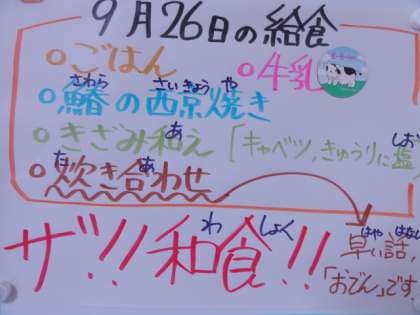 9月26日の給食
○ごはん ○牛乳
○鰆の西京焼き
さわら さいきょう や
○きざみ和え「キャベツ,きゅうりに塩
あ しお
○炊き合わせ
た あ
ザ!!和食!!
わ しょく
早い話,
はや はなし
「おでん」です